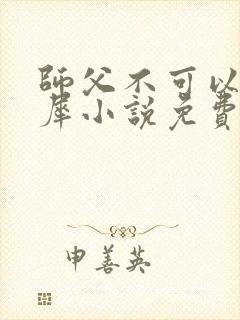 師父不可以
犀小說免費
申善英